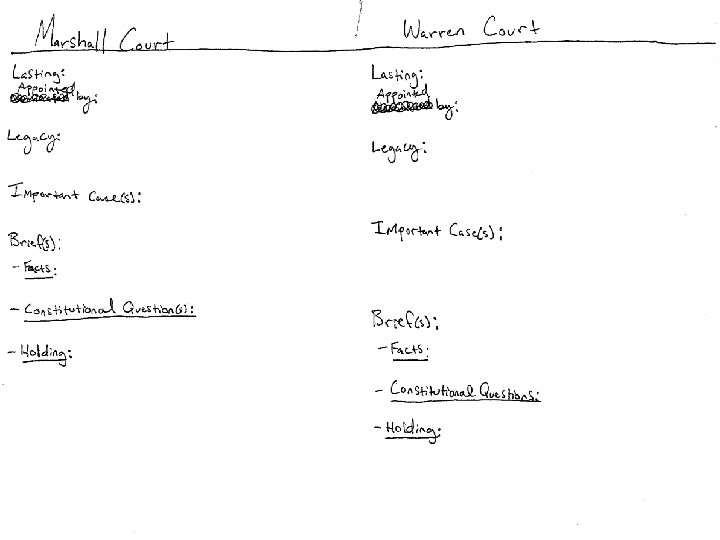 Marshall Court
Lasting:
Appointed
by:
Legacy:
Important Case(s):
Brief(s):
- Facts:
- Constitutional Question(s):
- Holding:
Warren Court
Lasting:
Appointed
by:
Legacy:
Important Case(s):
Brief(s):
- Facts:
- Constitutional Questions:
- Holding: